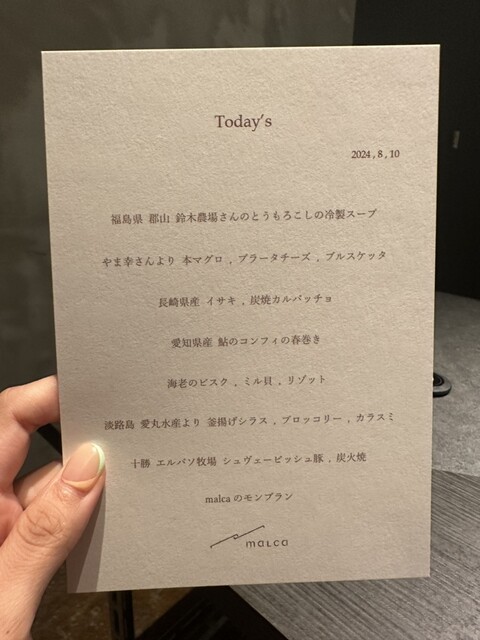 Today's
2024 , 8 , 10
福島県 郡山 鈴木農場さんのとうもろこしの冷製スープ
やま幸さんより 本マグロ , ブラータチーズ , ブルスケッタ
長崎県産 イサキ , 炭焼カルパッチョ
愛知県産 鮎のコンフィの春巻き
海老のビスク , ミル貝 , リゾット
淡路島 愛丸水産より 釜揚げシラス , ブロッコリー , カラスミ
十勝 エルパソ牧場 シュヴェービッシュ豚 , 炭火焼
malca のモンブラン
malca